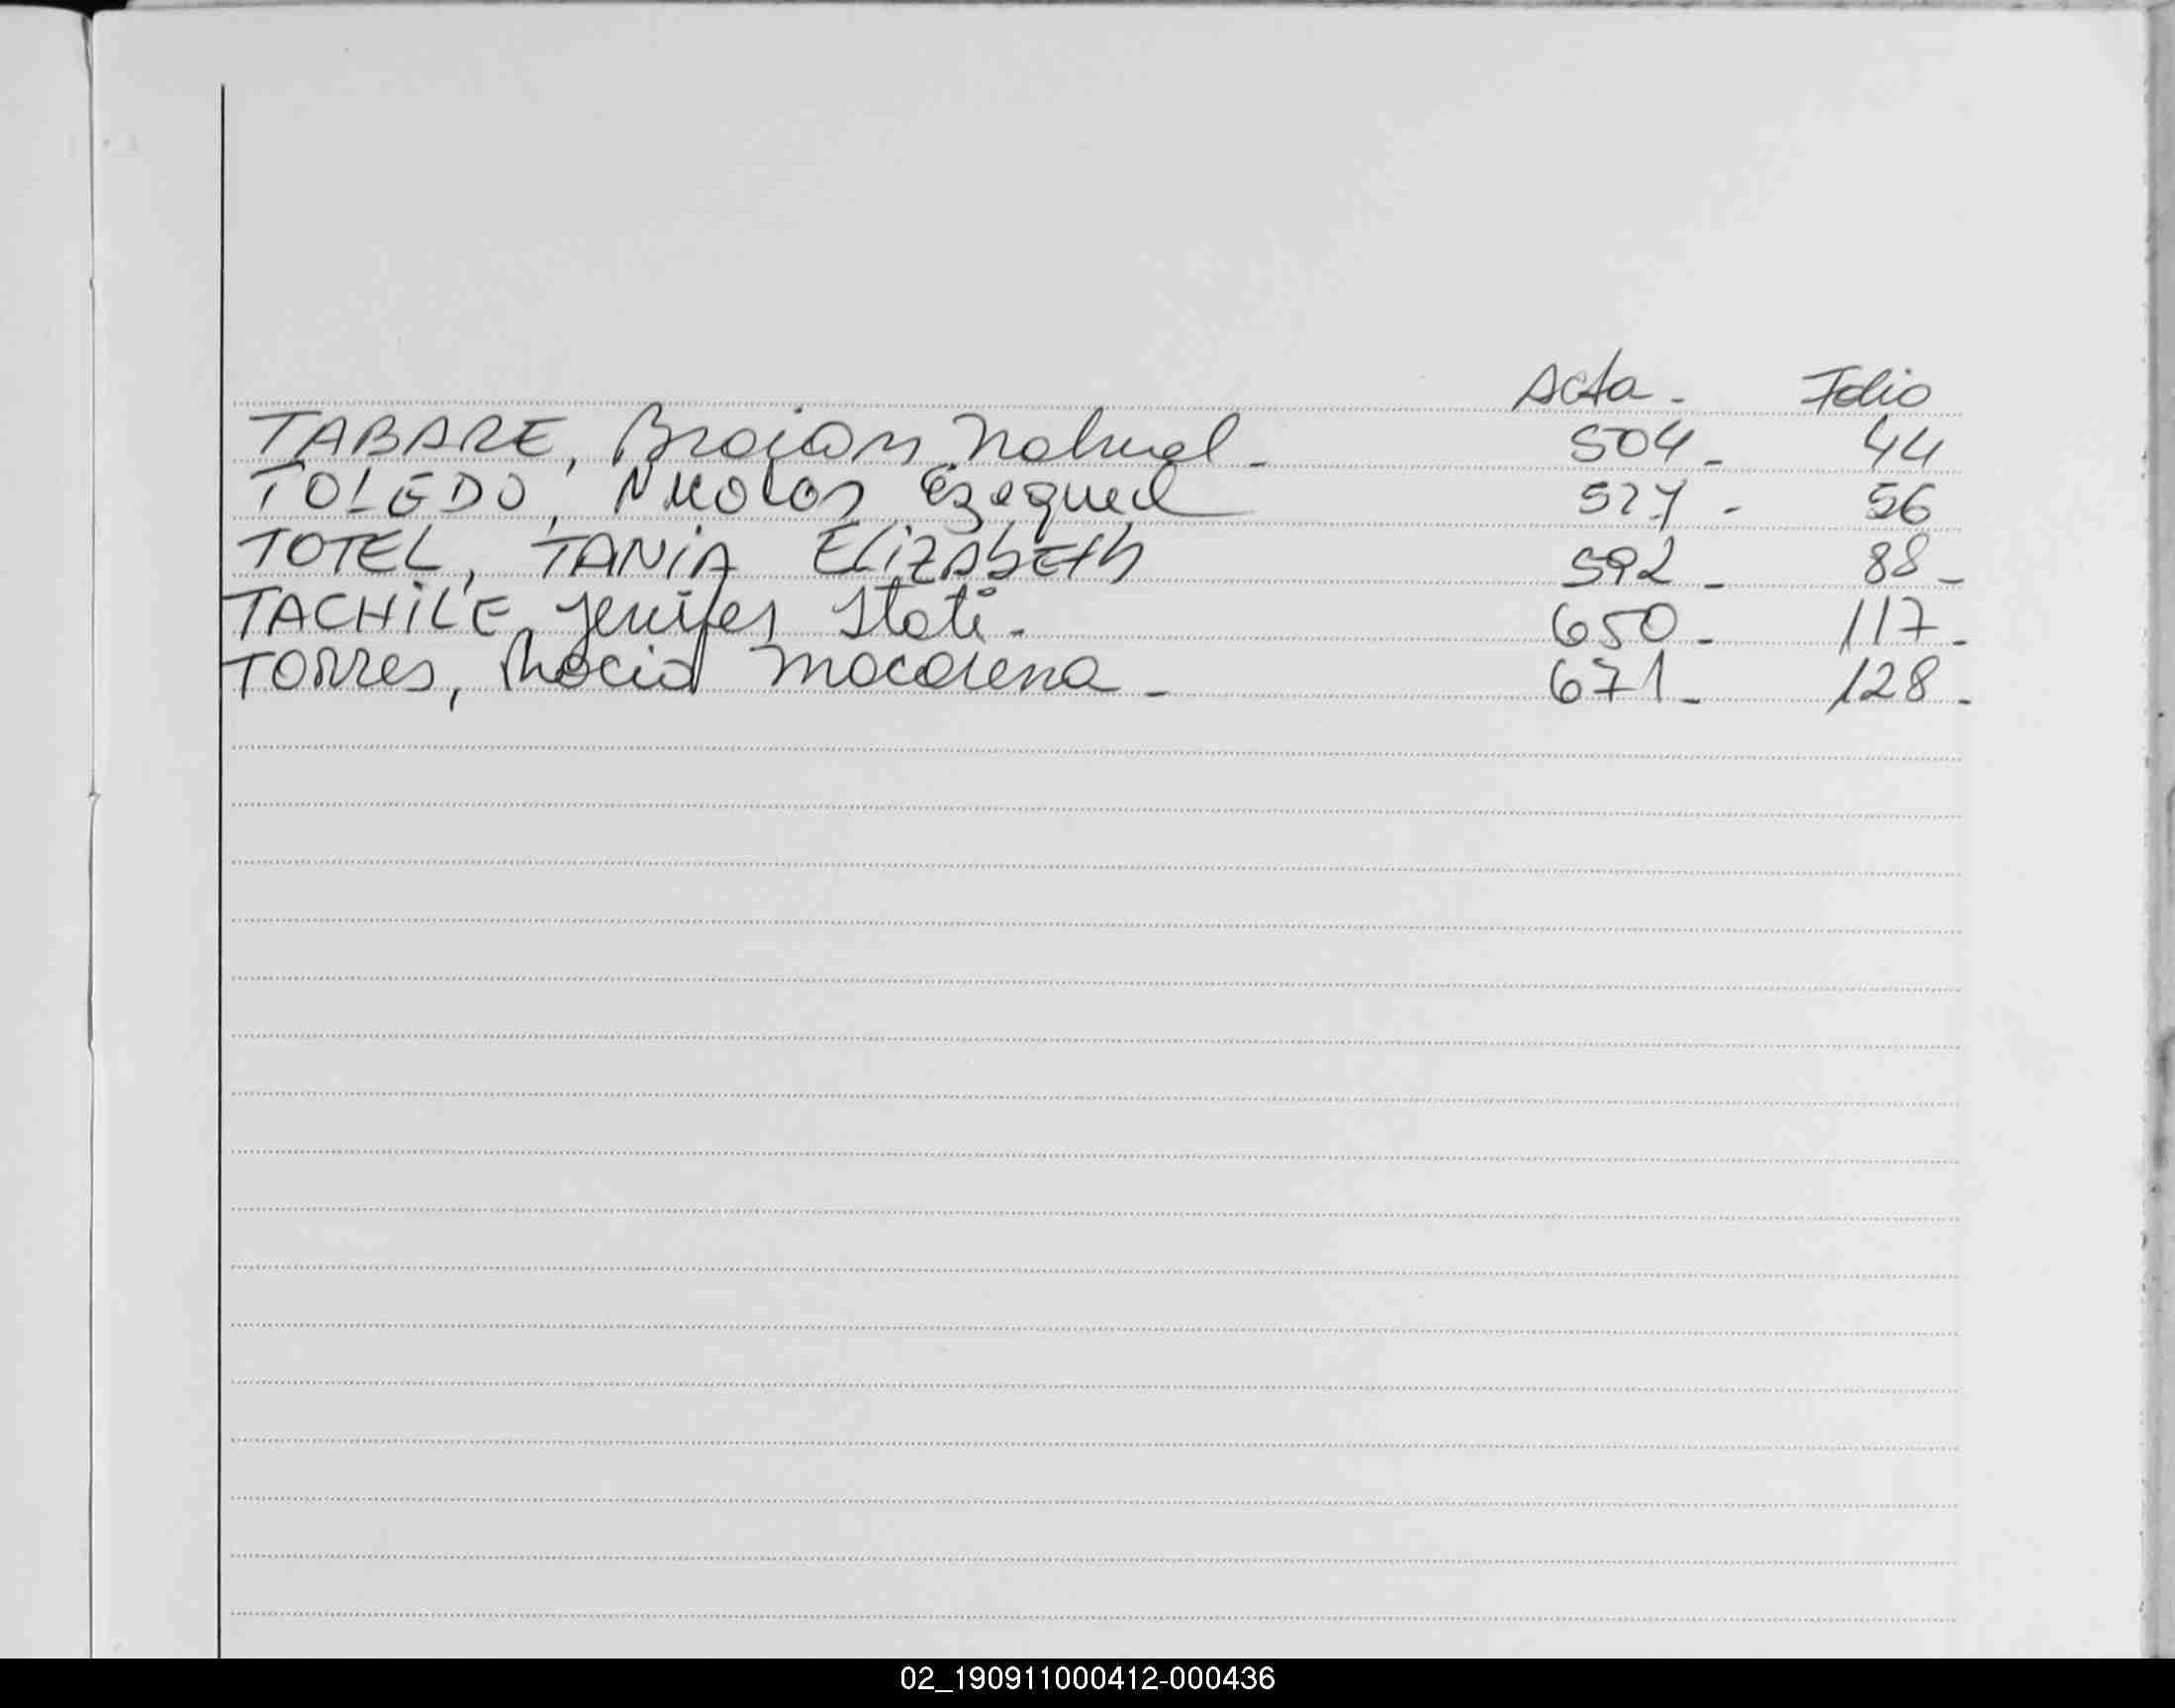 Acta - Folio
TABARE, Braian Nahuel - 504 - 44
TOLEDO, Nicolas Ezequiel 527 - 56
TOTEL, TANIA ELIZABETH 592 - 88 -
TACHILE, Jenifer Itati - 650 - 117 -
TORRES, Rocio Macarena - 671 - 128 -
02_190911000412-000436